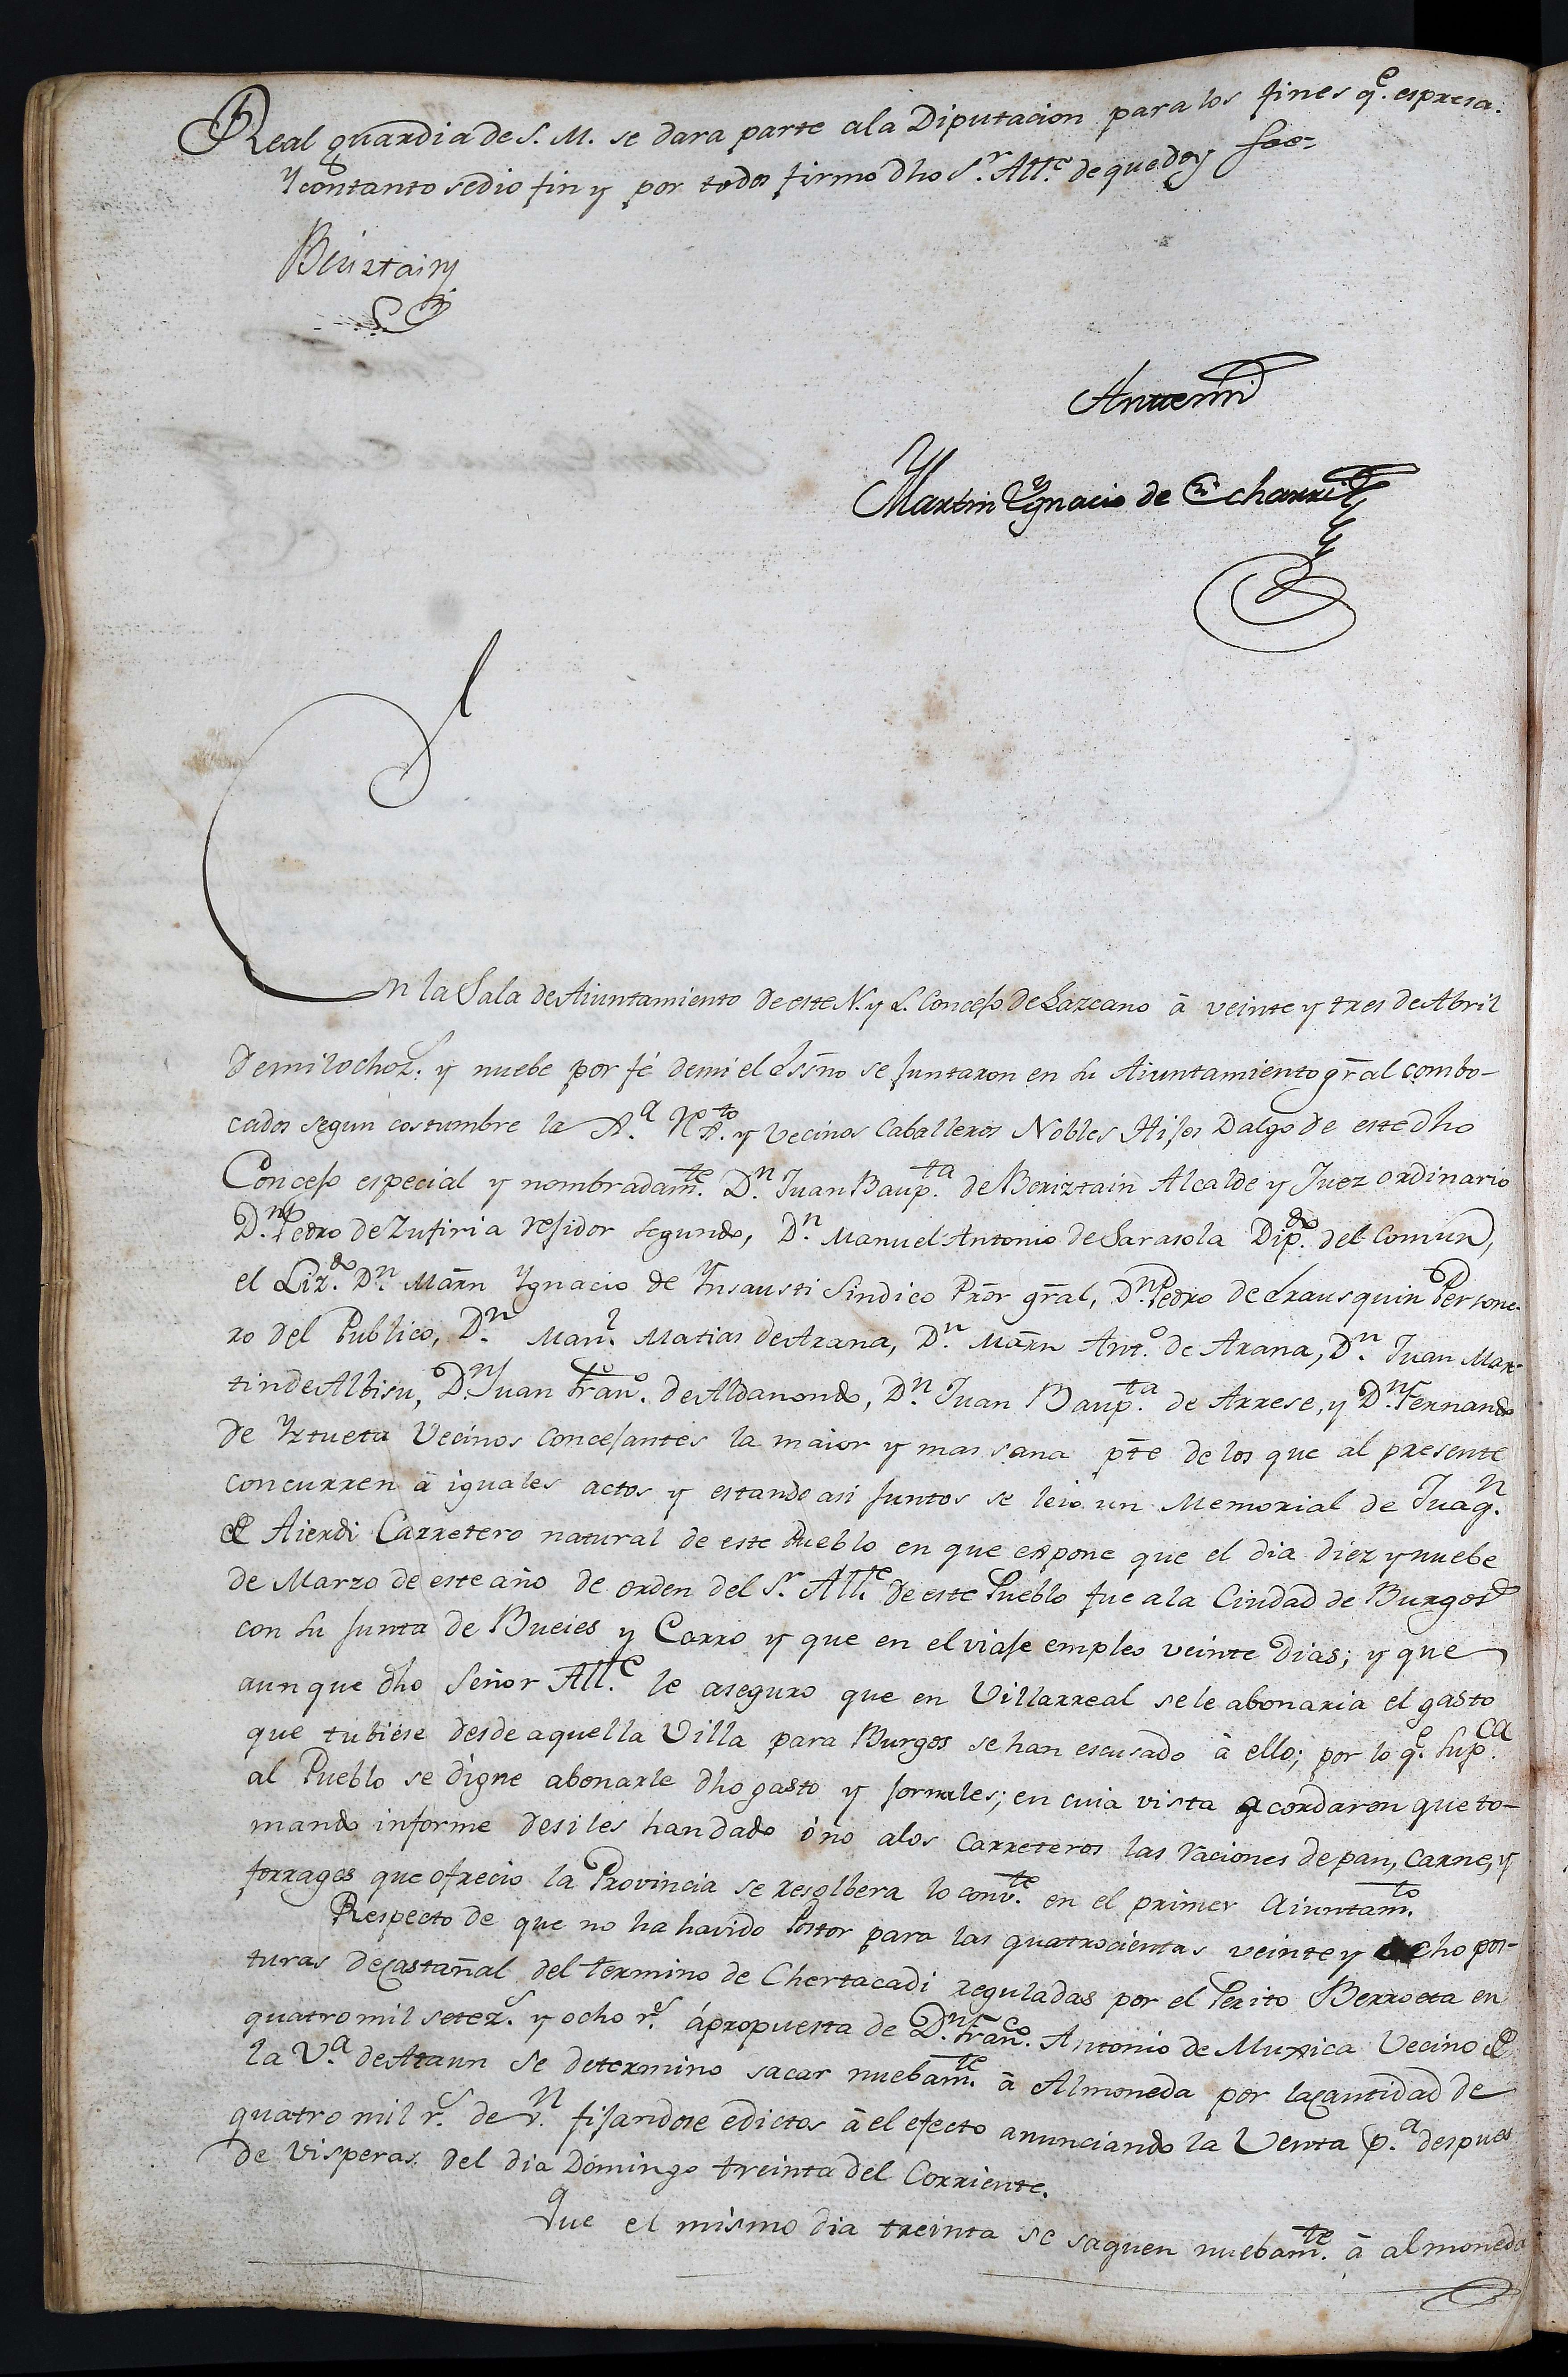 Real guardia de S. M. se dara parte ala Diputacion para los fines q.e espresa.
Y contanto sedio fin y por todos firmo dho S.r All.e de que doy fee=
Beriztain
Antemi
Martin Ygnacio de Echarri
En la Sala de Aiuntamiento de este N. y L. Concejo de Lazcano à veinte y tres de Abril
de mil ochoz.s y nuebe por fé demi el Essno se juntaron en su Aiuntamiento gral combo-
cados segun costumbre la A.a N.to y vecinos Caballeros Nobles Hijos Dalgo de este dho
Concejo especial y nombradam.te D.n Juan Baup.ta de Beriztain Alcalde y Juez ordinario
D.n Pedro de Zufiria rejidor segundo, D.n Manuel Antonio de Sarasola Dip.do del Comun,
el Liz.do D.n Marn Ygnacio de Ynsausti Sindico Pror gral, D.n Pedro de Lrausquin Persone-
ro del Publico, D.n Man.l Matias de Arana, D.n Marn Ant.o de Arana, D.n Juan Mar-
tin de Albisu, D.n Juan Fran.co de Aldanondo, D.n Juan Baup.ta de Arrese, y D.n Fernando
de Yztueta Vecinos concejantes la maior y mas sana pte de los que al presente
concurren à iguales actos y estando asi juntos se leio un Memorial de Juaq.n
de Aierdi Carretero natural de este Pueblo en que expone que el dia diez y nuebe
de Marzo de este año de orden del S.r All.e de este Pueblo fue ala Ciudad de Burgos
con su junta de Bueies y Carro y que en el viaje empleo veinte dias; y que
aunque dho Señor All.e le aseguro que en Villarreal sele abonaria el gasto
que tubiese desde aquella Villa para Burgos se han escusado à ello; por lo q.e sup.ca
al Pueblo se digne abonarle dho gasto y jornales; en cuia vista acordaron que to-
mando informe desiles handado ó no alos carreteros las raciones de pan, carne, y
forrages que ofrecio la Provincia se resolbera lo conv.te en el primer Aiuntam.to
Respecto de que no ha havido Postor para las quatrocientas veinte y ocho pos-
turas de castañal del termino de Chertacadi reguladas por el Perito Berroeta en
quatro mil setez.s y ocho r.s á propuesta de D.n Fran.co Antonio de Muxica Vecino de
la V.a de Ataun se determino sacar nuebam.te à Almoneda por la cantidad de
quatro mil r.s de v.n fijandose edictos à el efecto anunciando la Venta p.a despues
de visperas del dia Domingo treinta del Corriente.
Que el mismo dia treinta se saquen nuebam.te à almoneda